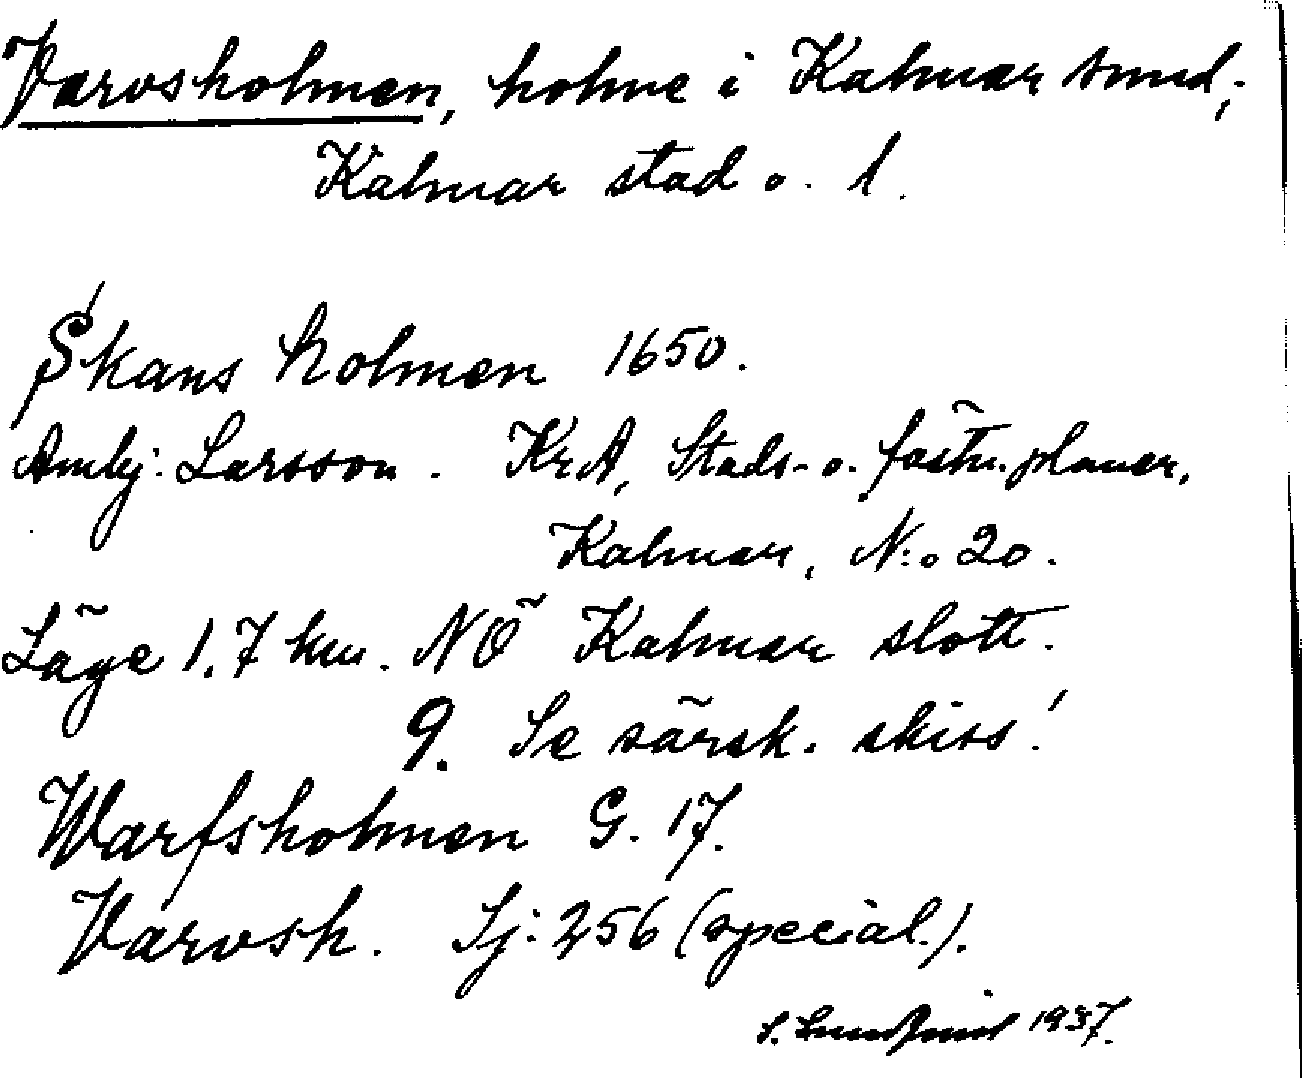 Varvsholmen, holme i Kalmar sund,
Kalmar stad o. l.
Skans holmen 1650.
Ambj: Larsson. KrA, Stads- o. fästn. planer,
Kalmar, N:o 20.
Läge 1.7 km. NÖ Kalmar slott.
9. Se särsk. skiss!
Warfsholmen G. 17.
Varvsh. Sj: 256 (special.).
S. 1937.